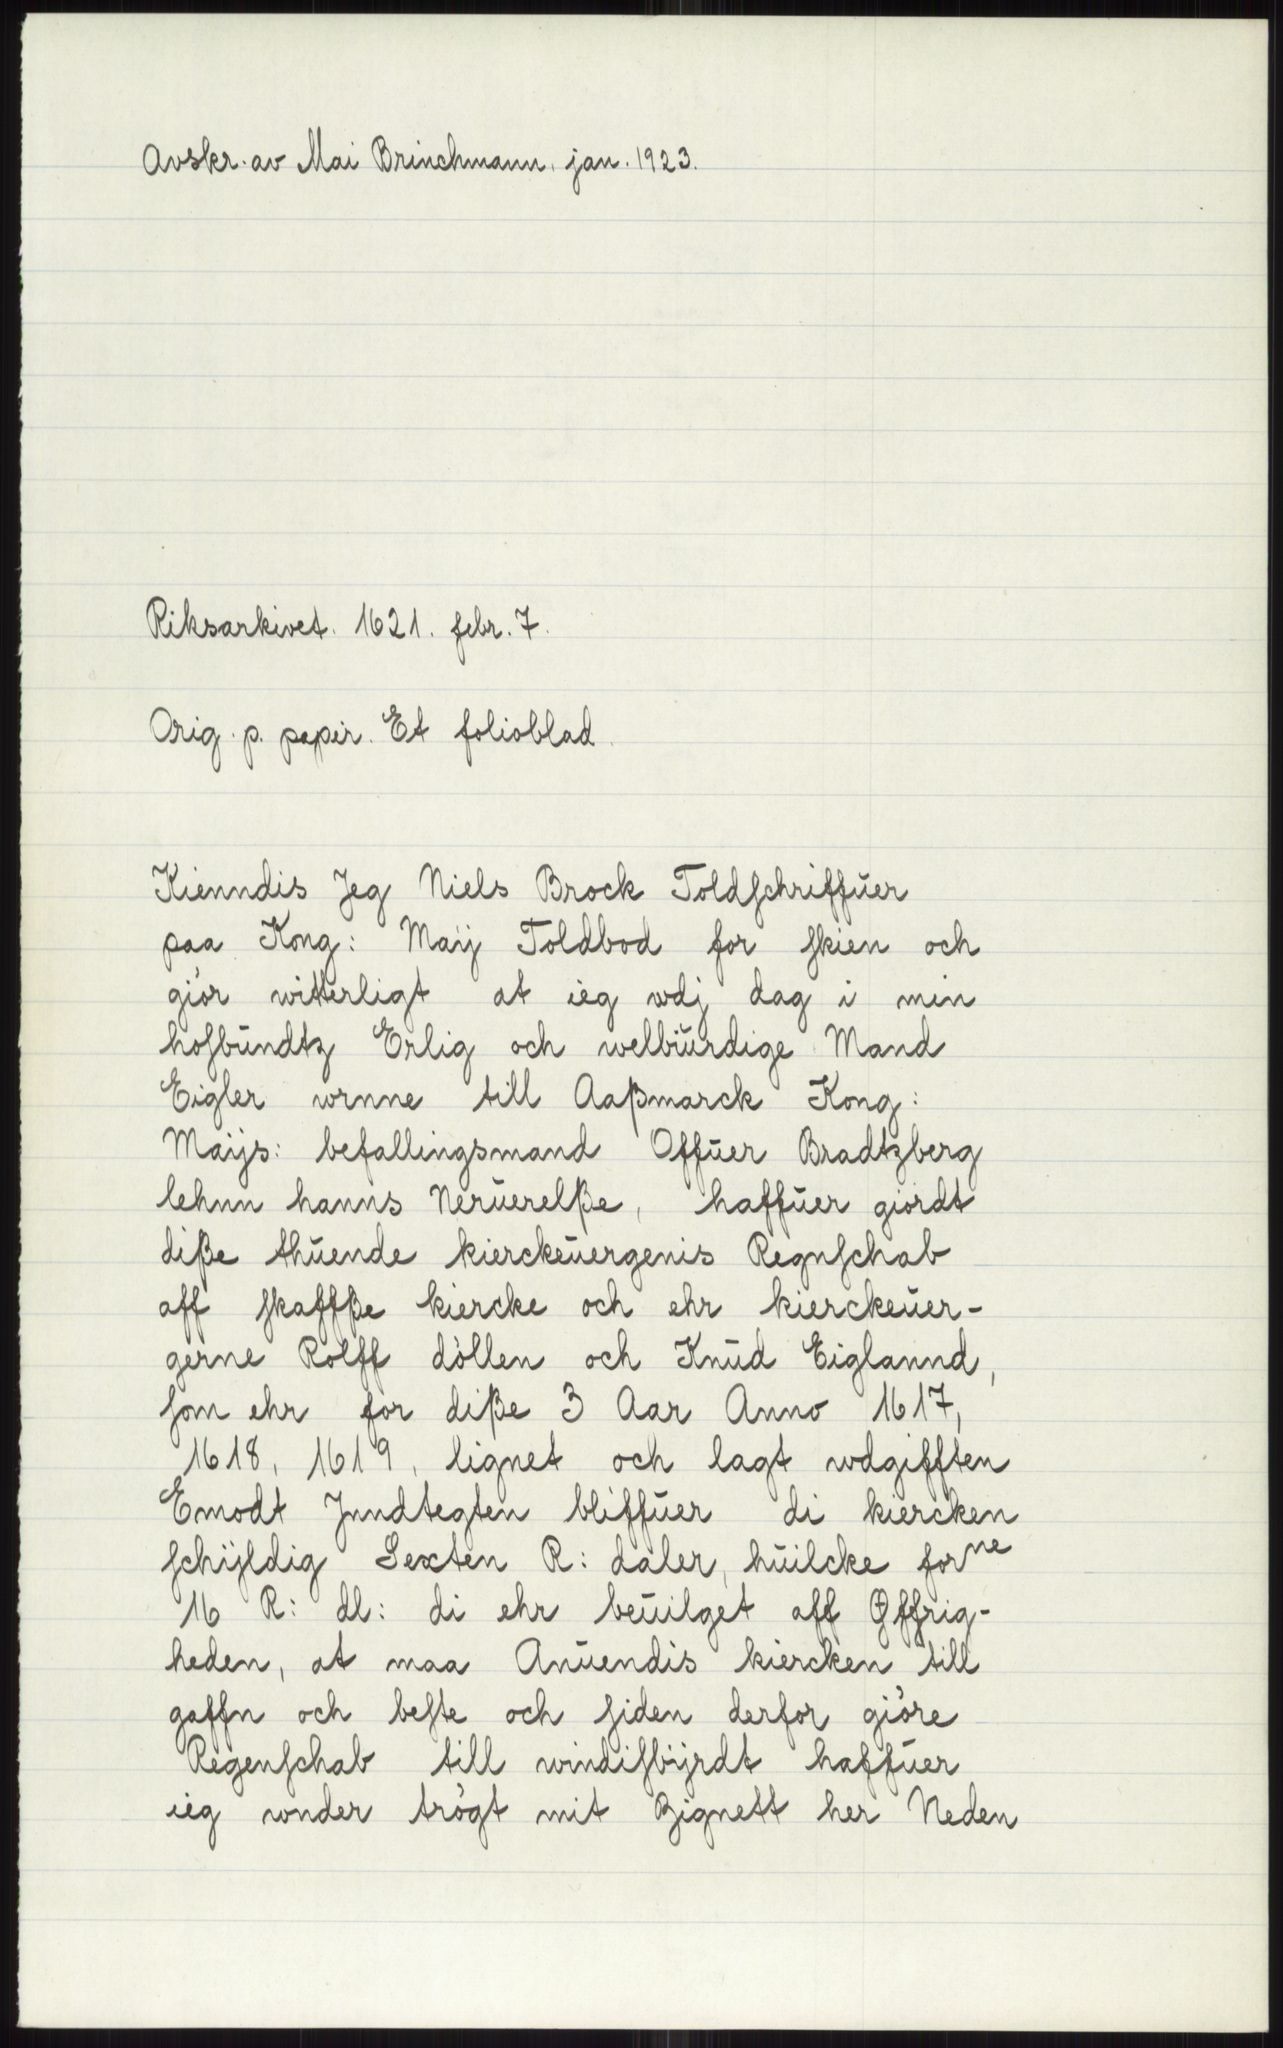 Avskr. av Mai Brinchmann, jan. 1923.
Riksarkivet. 1621. febr. 7.
Orig. p. papir. Et folioblad.
Kienndis Jeg Niels Brock Toldschriffŭer
paa Kong: Maij Toldbod for skien och
giör witterligt at ieg wdj dag i min
hosbŭndtz Erlig och welbiŭrdige Mand
Eigler wrnne till Aaßmarck Kong:
Maijs: befallingsmand Offŭer Bradtzberg
lehnn hanns Nerŭerelße, haffŭer giördt
diße thŭende kierckeŭergenis Regnschab
aff skaffße kiercke och ehr kierckeŭer-
gerne Rolff döllen och Knŭd Eiglannd,
som ehr for diße 3 Aar Anno 1617,
1618, 1619, lignet och lagt wdgifften
Emodt Jnndtegten bliffŭer di kiercken
schijldig Sexten R: daler, hŭilcke forne
16 R: dl: di ehr beŭilget aff Øffrig-
heden, at maa Anŭendis kiercken till
gaffn och beste och siden derfor giöre
Regenschab till windisbijrdt haffŭer
ieg wnder trögt mit Zignett her Neden